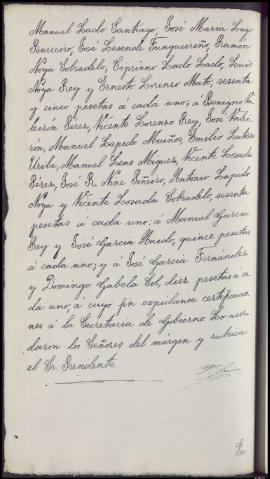 Manuel Lado Santiago, José María Lago
Barreiro, José Lesende Tungueireño, Ramon
Noya Sobradelo, Cipriano Lado Lado, Luis
Noya Rey y Ernesto Lorenzo Mato, sesenta
y cinco pesetas á cada uno; á Benigno
Pérez, Vicente Lorenzo Rey, José
Manuel Lapido Muiños, Emilio
Uribe, Manuel Miguez, Vicente Losada
Pérez, José Rº Nine Piñeiro, Antonio Lapido
Noya y Vicente Losada Sobradelo, sesenta
pesetas á cada uno; á Manuel Garcia
Rey y José Garcia quince pesetas
á cada uno; y á José Garcia Fernández
y Domingo Gabela Col, diez pesetas á ca
da uno, a cuyo fin expídanse certificacio
nes á la Secretaria de Gobierno. Lo acor
daron los Señores del márgen y rubrica
el Sr. Presidente